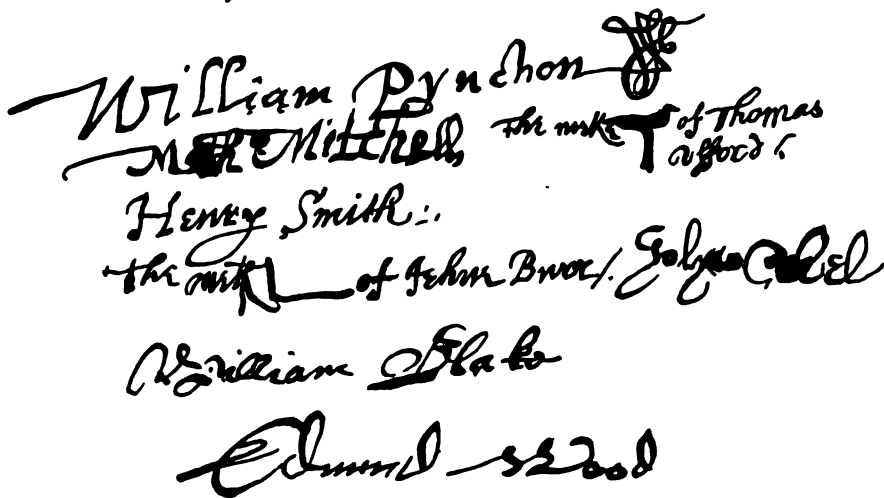 William Pynchon
Mathe Mitchell the marke T of Thomas
ufford
Henry Smith
the marke of Jehue Burr
William Blake
Edmund Wood